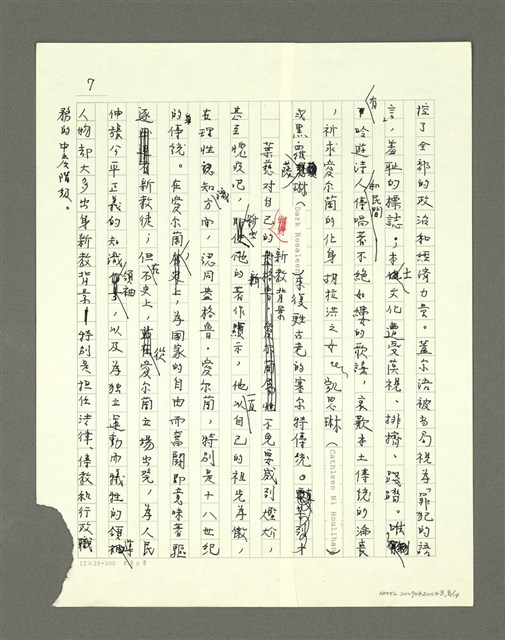 7
控了全部的政治和經濟力量。蓋尔语被当局視為「罪犯的語
言」，羞耻的標誌。本土文化遭受蔑視、排擠、踐踏。唯
有吟遊詩人和民間傳唱著不絕如縷的歌謠，哀歎本土傳統的淪喪
，祈求愛尔蘭的化身胡拉洪之女凱思琳（Cathleen Ni Houlihan）
或黑羅莎琳（Dark Rosaleen）來復甦古老的塞尔特傳統。
葉慈對自己的新教背景不免要感到尷尬，
甚至愧疚吧，他的著作顯示，他以自己的祖先為傲，
在理性認知方面，認同盎格魯·愛尔蘭，特別是十八世紀
的傳統。在愛尔蘭歷史上，為國家的自由而奮鬥即意味著驅
逐新教徒；但在歷史上，從愛尔蘭立場出発，為人民
伸張公平正義的知識領袖，以及為獨立運動而犧牲的領袖
人物却大多出身新教背景——特別是担任法律、傳教和行政職
務的中產階級。
12×25=300
NMTL 20090420043, 8/14